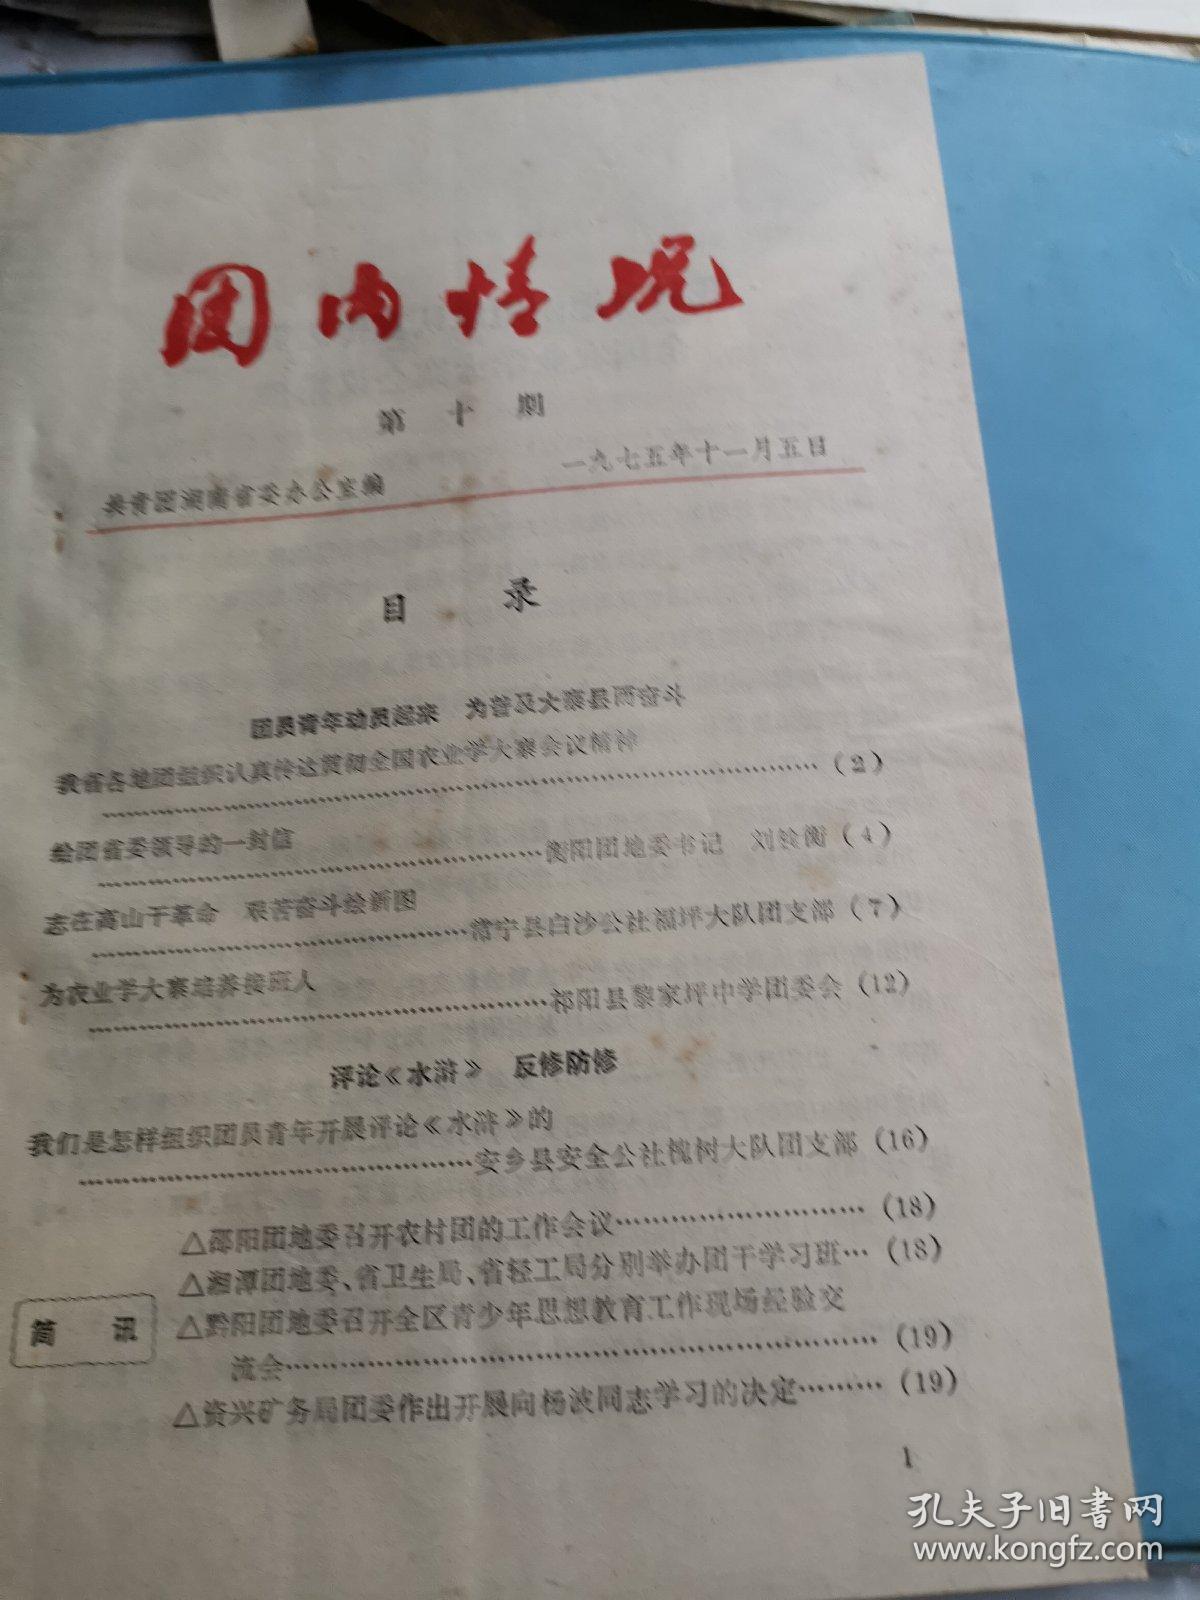 团内情况
第十期
共青团湖南省委办公室编 一九七五年十一月五日
目 录
团员青年动员起来 为普及大寨县而奋斗
我省各地团组织认真传达贯彻全国农业学大寨会议精神
……………………………………………………………………(2)
给团省委领导的一封信
…………………………………………衡阳团地委书记 刘铃衡(4)
志在高山干革命 艰苦奋斗绘新图
…………………………………常宁县白沙公社福坪大队团支部(7)
为农业学大寨培养接班人
…………………………………………祁阳县黎家坪中学团委会(12)
评论《水浒》 反修防修
我们是怎样组织团员青年开展评论《水浒》的
…………………………………安乡县安全公社槐树大队团支部(16)
简 讯
△邵阳团地委召开农村团的工作会议………………………(18)
△湘潭团地委、省卫生局、省轻工局分别举办团干学习班…(18)
△黔阳团地委召开全区青少年思想教育工作现场经验交
流会……………………………………………………………(19)
△资兴矿务局团委作出开展向杨波同志学习的决定………(19)
1
孔夫子旧书网
www.kongfz.com